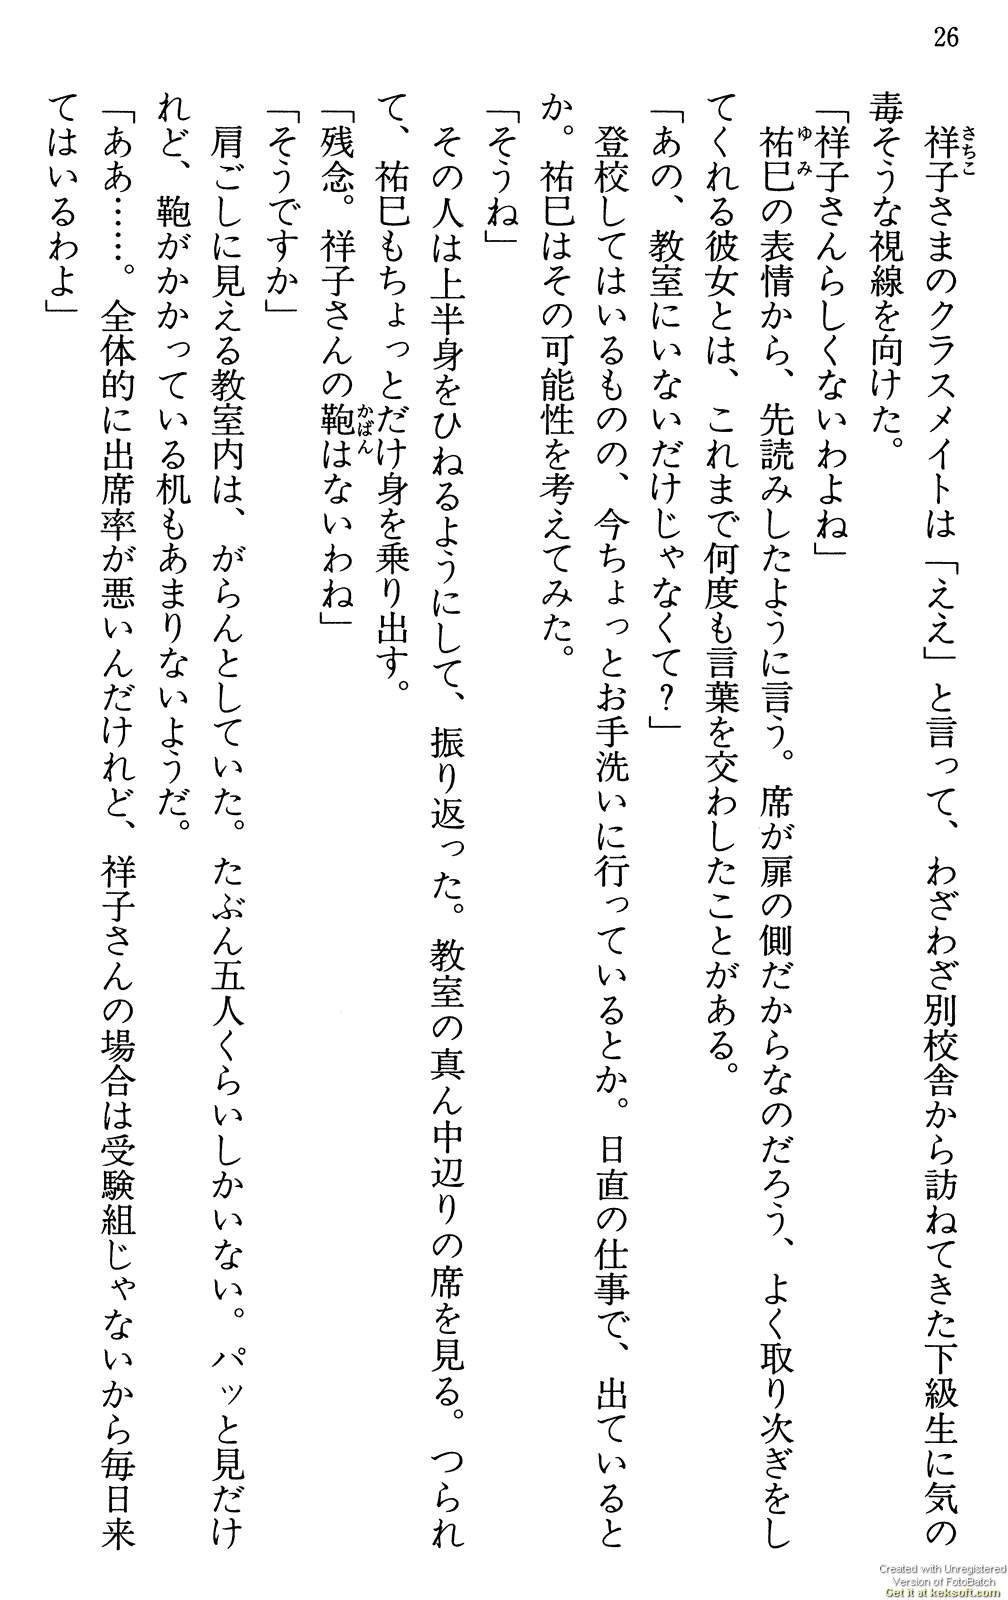 26
祥子さまのクラスメイトは「ええ」と言って、わざわざ別校舎から訪ねてきた下級生に気の
さちこ
毒そうな視線を向けた。
「祥子さんらしくないわよね」
祐巳の表情から、先読みしたように言う。席が扉の側だからなのだろう、よく取り次ぎをし
ゆみ
てくれる彼女とは、これまで何度も言葉を交わしたことがある。
「あの、教室にいないだけじゃなくて?」
登校してはいるものの、今ちょっとお手洗いに行っているとか。日直の仕事で、出ていると
か。祐巳はその可能性を考えてみた。
「そうね」
その人は上半身をひねるようにして、振り返った。教室の真ん中辺りの席を見る。つられ
て、祐巳もちょっとだけ身を乗り出す。
「残念。祥子さんの鞄はないわね」
かばん
「そうですか」
肩ごしに見える教室内は、がらんとしていた。たぶん五人くらいしかいない。パッと見だけ
れど、鞄がかかっている机もあまりないようだ。
「ああ……。全体的に出席率が悪いんだけれど、祥子さんの場合は受験組じゃないから毎日来
てはいるわよ」
Created with Unregistered
Version of FotoBatch
Get it at keksoft.com